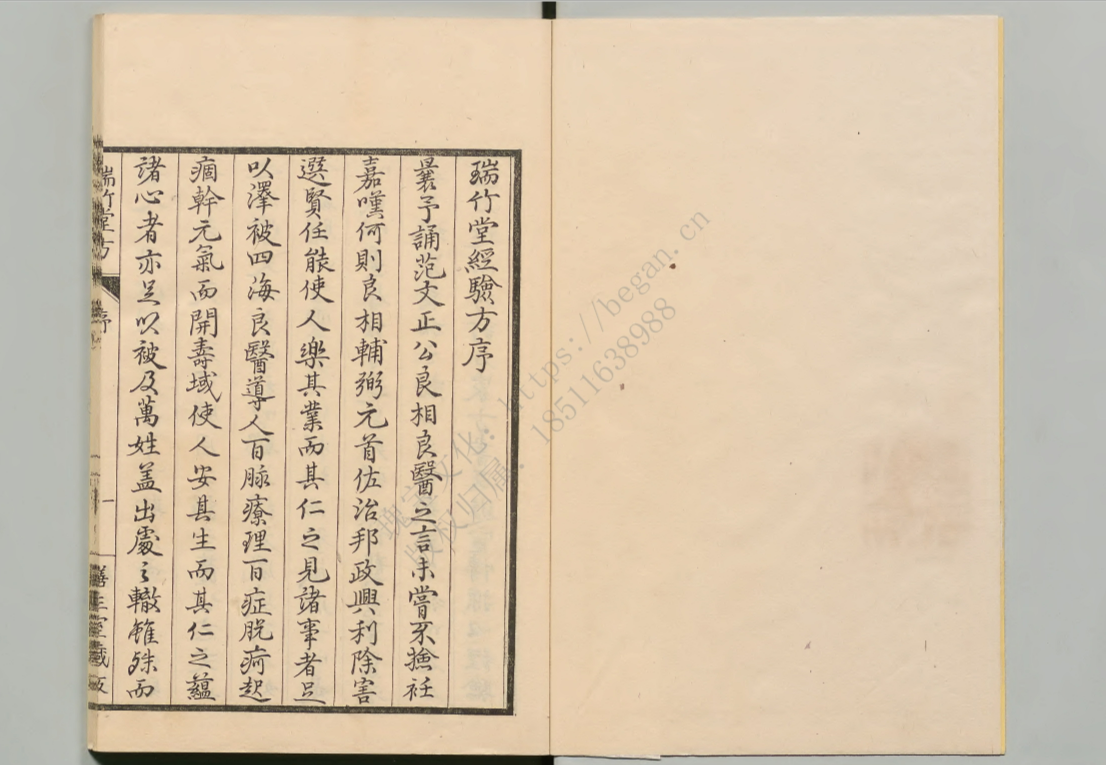 瑞竹堂經驗方序
曩予誦范文正公良相良醫之言未嘗不撿衽
嘉嘆何則良相輔弼元首佐治邦政興利除害
選賢任能使人樂其業而其仁之見諸事者足
以澤被四海良醫導人百脉療理百症脫痾起
痼幹元氣而開壽域使人安其生而其仁之蘊
諸心者亦足以被及萬姓盖出處之轍雖殊而
瑞竹堂方
序
一
堂藏版
https://began.cn
18511638988
版权归属